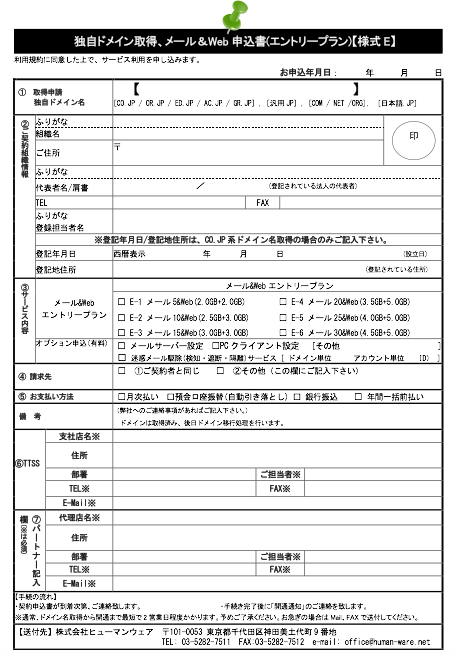 独自ドメイン取得、メール＆Web 申込書(エントリープラン)【様式 E】
利用規約に同意した上で、サービス利用を申し込みます。
お申込年月日： 年 月 日
① 取得申請
独自ドメイン名
【 】
[CO.JP / OR.JP / ED.JP / AC.JP / GR.JP] 、[汎用 JP] 、[COM / NET /ORG]、 [日本語.JP]
②ご契約組織情報
ふりがな
組織名
印
ご住所
〒
ふりがな
代表者名/肩書
／ (登記されている法人の代表者)
TEL FAX
ふりがな
登録担当者名
※登記年月日/登記地住所は、CO.JP 系ドメイン名取得の場合のみご記入下さい。
登記年月日 西暦表示 年 月 日 (設立日)
登記地住所 (登記されている住所)
③サービス内容
メール&Web
エントリープラン
メール&Web エントリープラン
□ E-1 メール 5&Web(2.0GB+2.0GB) □ E-4 メール 20&Web(3.5GB+5.0GB)
□ E-2 メール 10&Web(2.5GB+3.0GB) □ E-5 メール 25&Web(4.0GB+5.0GB)
□ E-3 メール 15&Web(3.0GB+3.0GB) □ E-6 メール 30&Web(4.5GB+5.0GB)
オプション申込(有料)
□ メールサーバー設定 □PC クライアント設定 [その他 ]
□ 迷惑メール駆除(検知・遮断・隔離)サービス [ ドメイン単位 アカウント単位 (D) ]
④ 請求先 □ ①ご契約者と同じ □ ②その他（この欄にご記入下さい）
⑤ お支払い方法 □月次払い □預金口座振替(自動引き落とし) □ 銀行振込 □ 年間一括前払い
備 考
(弊社へのご連絡事項があればご記入下さい。)
ドメインは取得済み、後日ドメイン移行処理を行います。
⑥TTSS
支社店名※
住所
部署 ご担当者※
TEL※ FAX※
E-Mail※
⑦パートナー記入欄(※は必須)
代理店名※
住所
部署 ご担当者※
TEL※ FAX※
E-Mail※
【手続の流れ】
・契約申込書が到着次第、ご連絡致します。 ・手続き完了後に「開通通知」のご連絡を致します。
※通常、ドメイン名取得から開通まで最短で 2 営業日程度かかります。予めご了承ください。お急ぎの場合は Mail、FAX で送付してください。
【送付先】株式会社ヒューマンウェア 〒101-0053 東京都千代田区神田美土代町 9 番地
TEL: 03-5282-7511 FAX:03-5282-7512 e-mail: office@human-ware.net